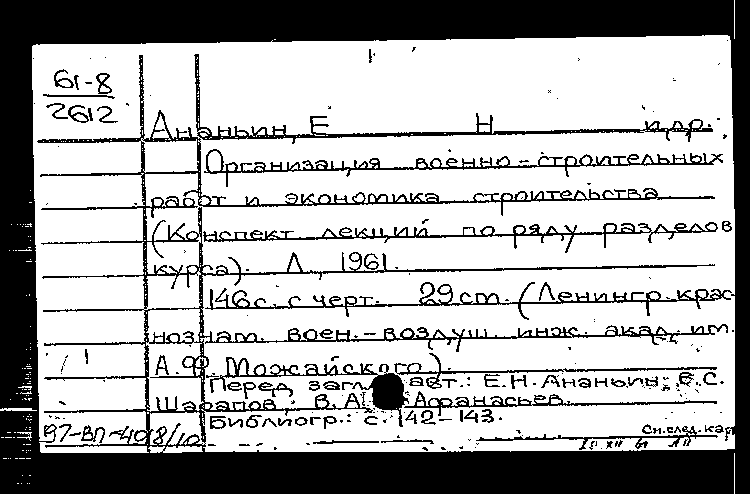 61-8
2612
Ананьин, Е Н и др.
Организация военно-строительных
работ и экономика строительства
(Конспект лекций по ряду разделов
курса). Л., 1961.
146 с. с черт. 29 см. (Ленингр. крас-
нознам. воен.-воздуш. инж. акад. им.
А.Ф. Можайского).
Перед загл. авт.: Е.Н. Ананьин, В.С.
Шарапов, В.А. Афанасьев.
Библиогр.: с. 142-143.
97-ВП-4018/10
См. след. кар